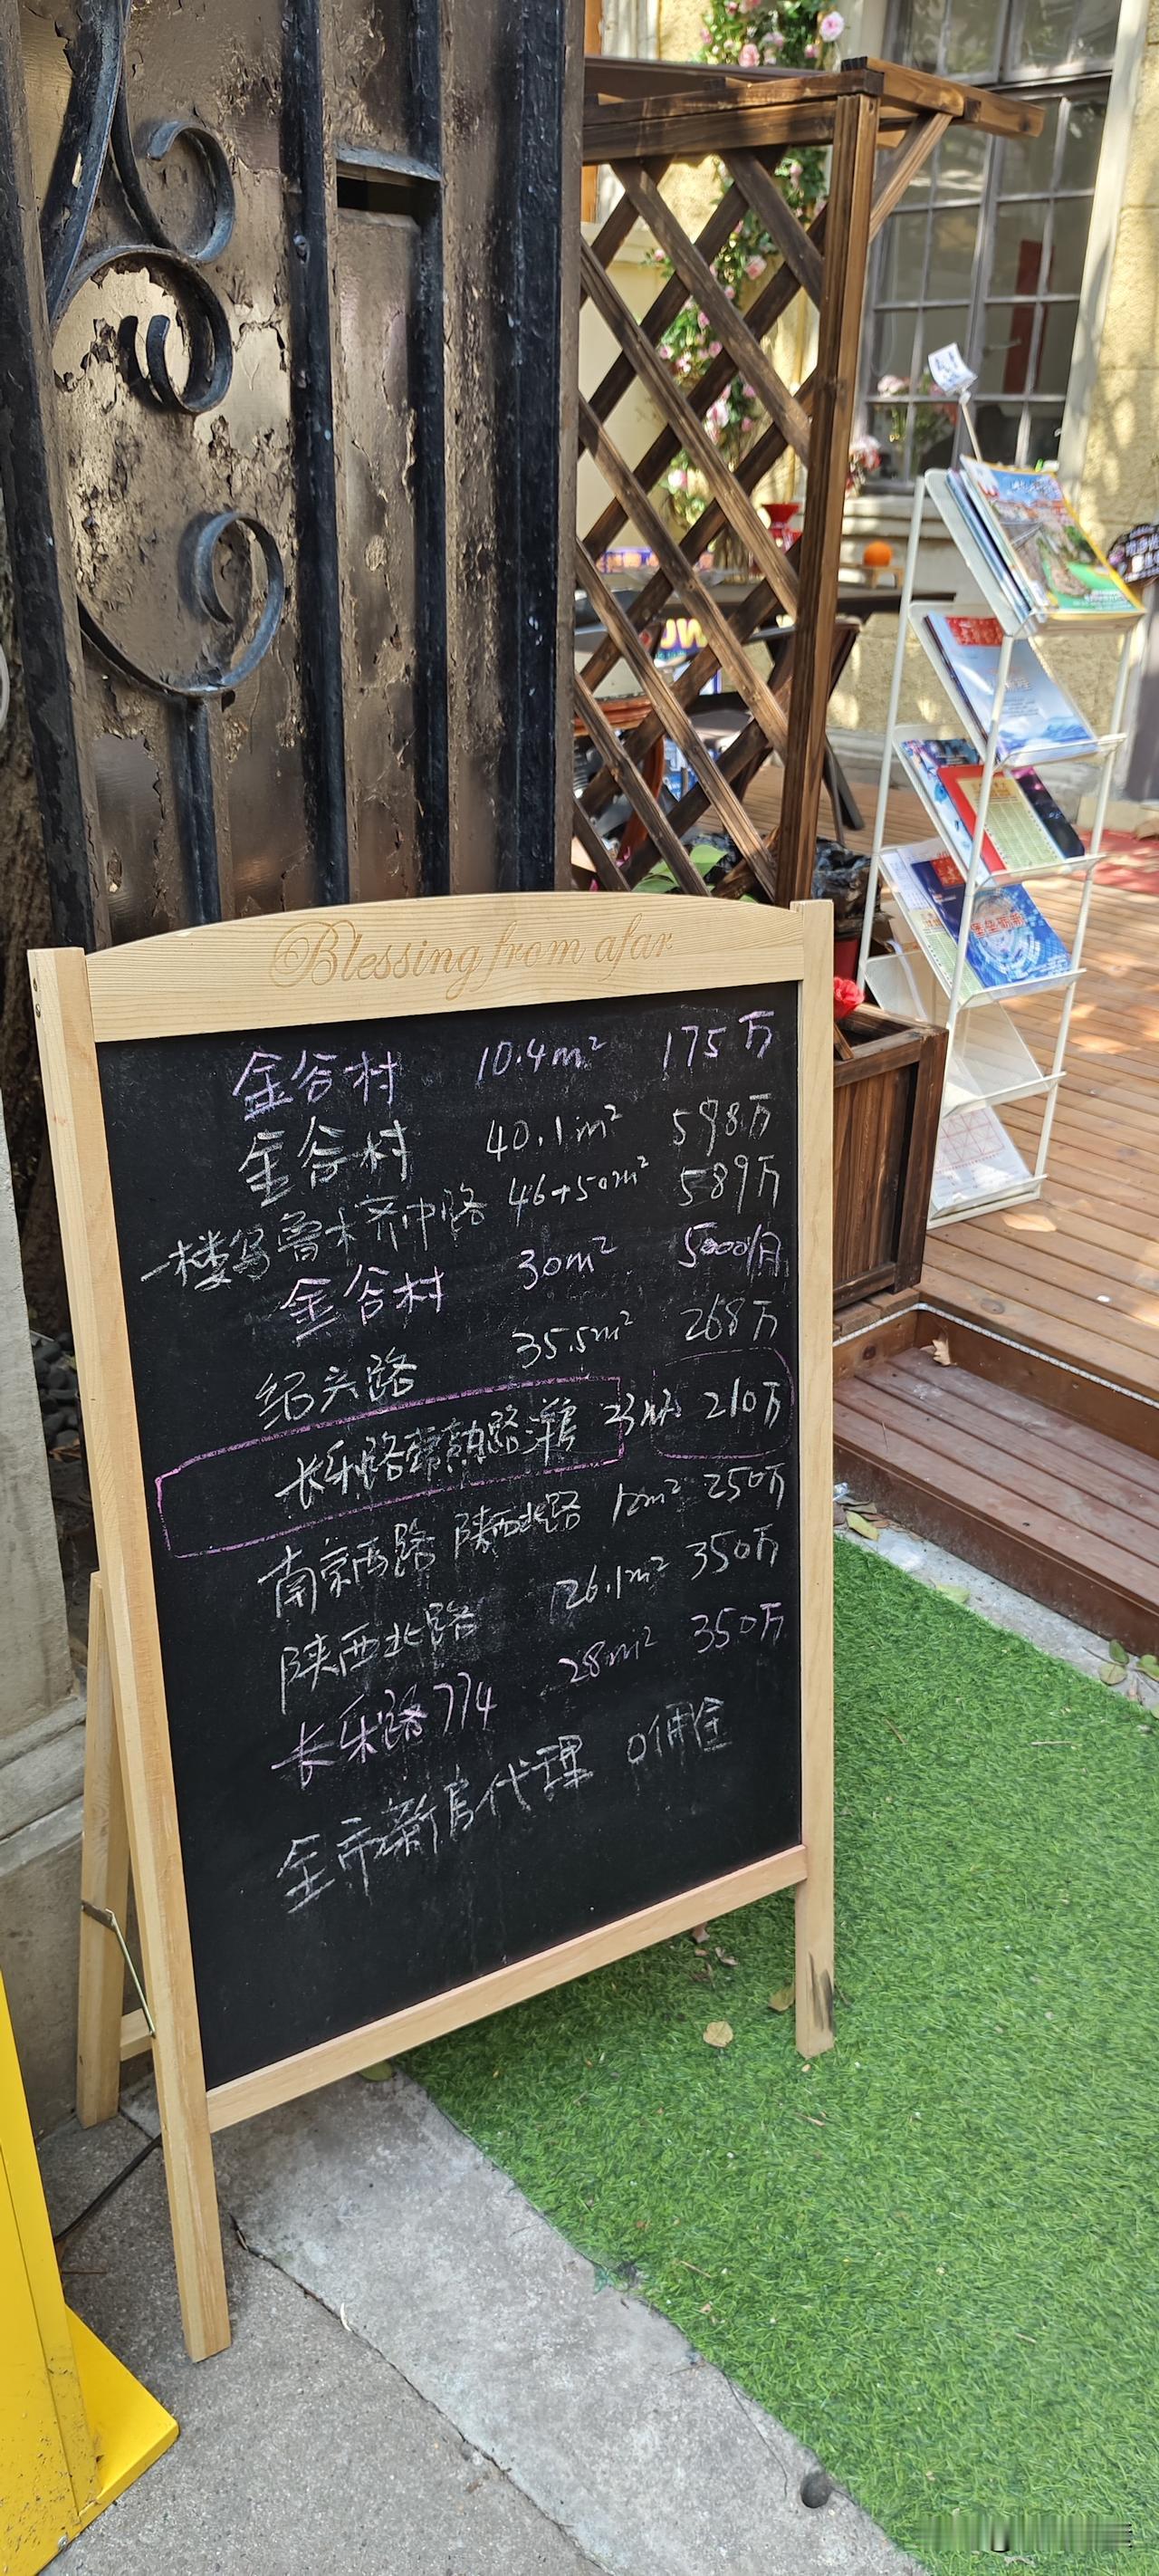 Blessing from afar
金谷村 10.4m² 175万
金谷村 40.1m² 598万
一楼 鲁木齐中路 46+50m² 589万
金谷村 30m² 5000/月
绍兴路 35.5m² 268万
长乐路常熟路洋房 23m² 210万
南京西路 陕西北路 12m² 250万
陕西北路 26.1m² 350万
长乐路774 28m² 350万
全市新房代理 0佣金